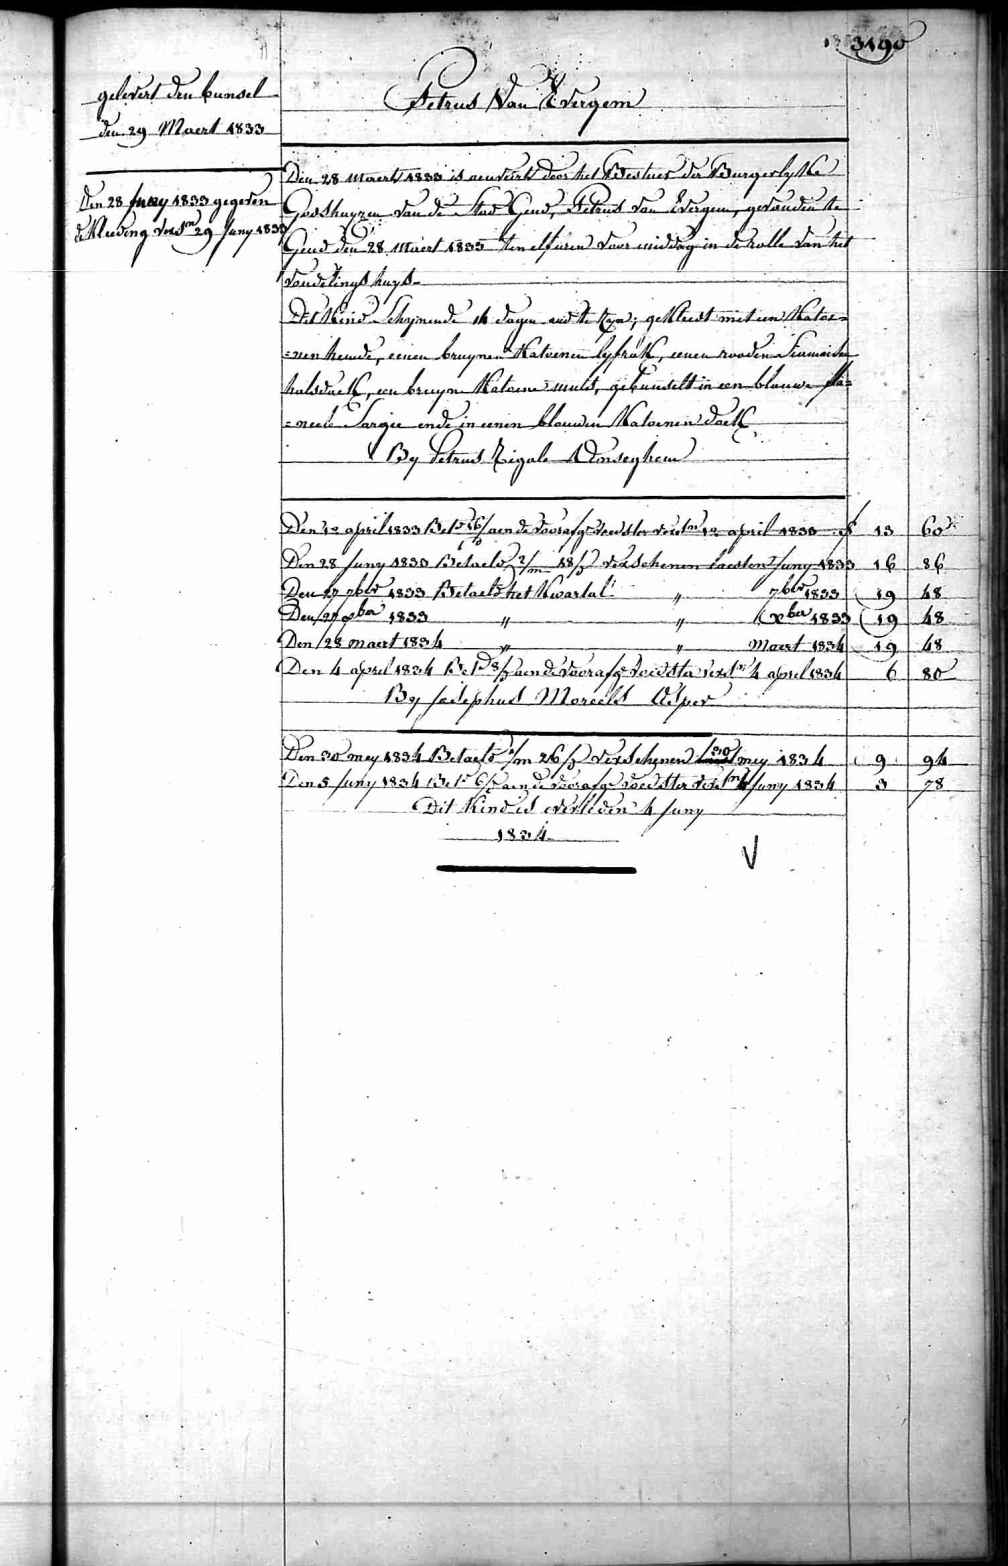 3190
gelevert den bunsel
den 29 Maert 1833
Petrus Van Evergem
Den 28 maert 1833 is aenveirt door het Bestuer der Burgerlyke
Godshuyzen van de Stad Gend, Petrus Van Evergem, gevonden te
Gend den 28 Maert 1833 ten elf uren voor middag in de rolle van het
vondelingshuys
Den 28 Juny 1833 gegeven
de Kleeding vers.en 29 Juny 1833
Dit Kind Schynende 14 dagen oud te zyn; gekleed met een Katoe=
=nen hemde, eenen bruynen Katoenen lyfrok, eenen rooden
halsdoek, een bruyn Katoene muts, gebunselt in een blauwe fla=
=neele Sargie ende in eenen blauwen Katoenen doek
By Petrus Zigale
Den 12 april 1833 Bet.d 16/ aen de voorafg.e voedster vers.en 12 april 1833 f 13 60
Den 28 Juny 1833 Betaeld 2/m 18/ verschenen laesten Juny 1833 16 86
Den 27 7ber 1833 Betaeld het Kwartal " 7ber 1833 19 48
Den 27 Xber 1833 " " Xber 1833 19 48
Den 28 maert 1834 " " Maert 1834 19 48
Den 4 april 1834 Bet.d 8/ aen de voorafg.e voedster vers.en 4 april 1834 6 80
By Josephus Moreels Asper
Den 30 mey 1834 Betaeld 1/m 26/ verschenen 30 mey 1834 9 94
Den 5 Juny 1834 Bet.d 6/ aen de voorafg.e voedster vers.en 4 Juny 1834 3 78
Dit Kind is overleden 4 Juny
1834